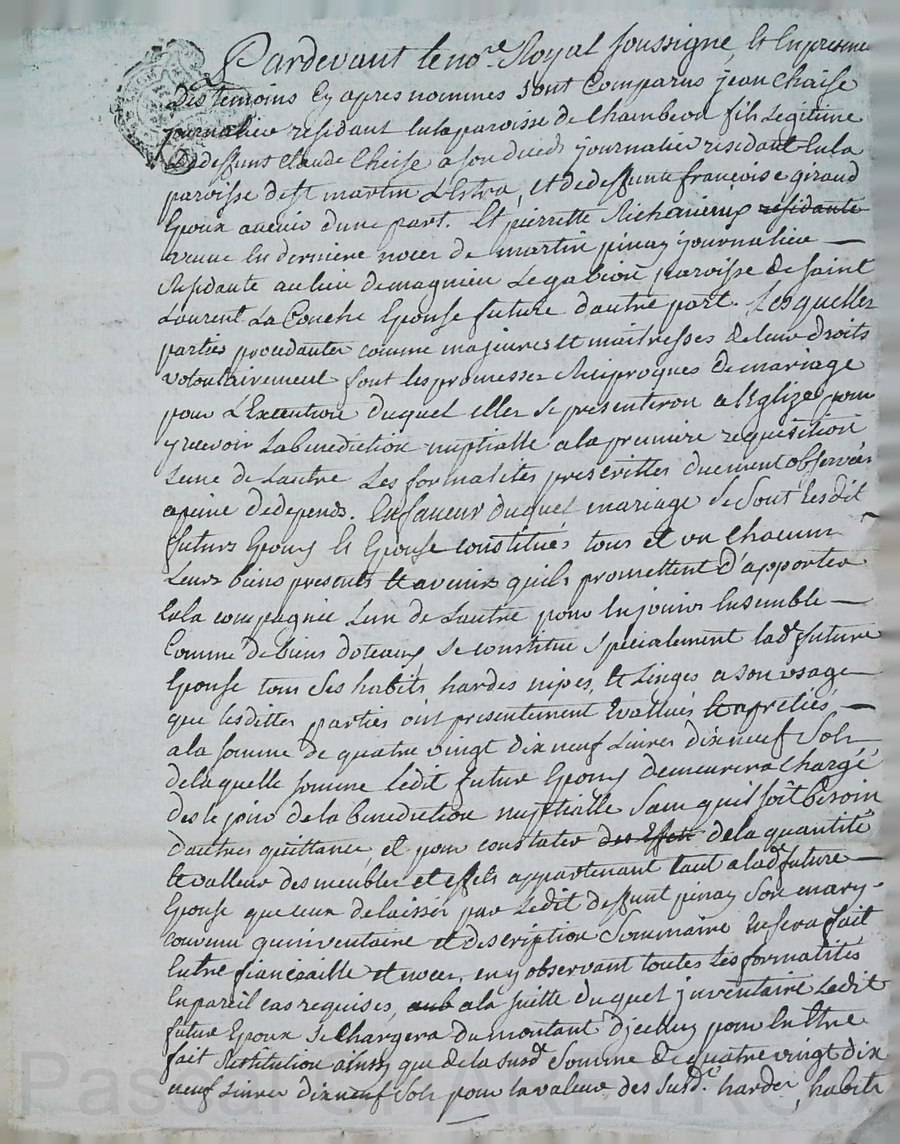 Pardevant le no.re Royal soussigne, et en presence
des temoins cy apres nommés sont comparus jean chaise
journalier residant en la paroisse de Chambeon fils Legitime
de deffunt claude Cheise a son vivant journalier residant en la
paroisse de st martin L'Estra, et de deffunte francoise giraud
Epoux avenir d'une part. Et pierrette Richarieux residante
veuve en derniere noces de martin pinay journalier —
Residante au lieu de magnieu Le gabion, paroisse de Saint
Laurent La Conche Epouse future d'autre part. Lesquelles
parties procedantes comme majeures et maitresses de leur droits
volontairement font les promesses Reciproques de mariage
pour L'Execution duquel elles se presenteron a l'Eglize pour
y recevoir La benediction nuptialle a la premiere requisition
Lune de Lautre Les formalités prescrittes duement observées
a peine de depends. En faveur duquel mariage se sont les dit
futurs Epoux et Epouse constitués tous et un Chacun
Leurs biens presents et avenirs quils promettent d'apporter
en la compagnie Lun de Lautre pour en jouir Ensemble —
Comme de biens doteaux se constitue specialement lad.e future
Epouse tous ses habits hardes nipes, et Linges a son usage
que lesdittes parties ont presentement Evallués et apretiés —
a la somme de quatre vingt dix neuf Livres dix neuf Sols
de laquelle somme ledit futur Epoux demeurera Chargé
des le jour de la benediction nuptialle sans quil soit besoin
d'autres quittance, et pour constater des Effets de la quantité
et valleur des meubles et effets appartenant tant a lad.e future —
Epouse que ceux delaissés par Ledit deffunt pinay Son mary
convenu qu'inventaire et description Sommaire en sera fait
Entre fiancaille et noces, en y observant toutes Les formalités
En pareil cas requises, a la suitte duquel inventaire Ledit
futur Epoux se Chargera du montant d'jcelluy pour en Etre
fait Restitution ainsy que de la susd.e Somme de quatre vingt dix
neuf Livres dix neuf Sols pour la valeur des susd.s hardes, habits
Pascal CHAREYRON